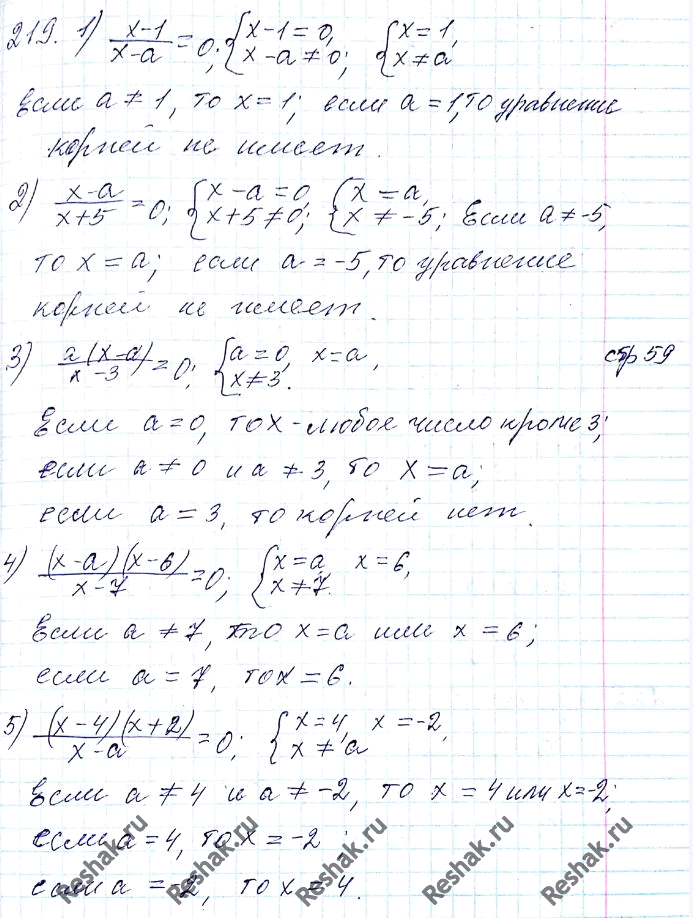 219. 1) (x-1)/(x-a) = 0; { x-1=0, x-a≠0; { x=1, x≠a
Если a≠1, то x=1; если a=1, то уравнение
корней не имеет.
2) (x-a)/(x+5) = 0; { x-a=0, x+5≠0; { x=a, x≠-5; Если a≠-5,
то x=a; если a=-5, то уравнение
корней не имеет.
3) (a(x-a))/(x-3) = 0; { a=0, x=a, x≠3. стр 59
Если a=0, то x-любое число кроме 3;
если a≠0 и a≠3, то x=a;
если a=3, то корней нет.
4) ((x-a)(x-6))/(x-7) = 0; { x=a, x=6, x≠7.
Если a≠7, то x=a или x=6;
если a=7, то x=6.
5) ((x-4)(x+2))/(x-a) = 0; { x=4, x=-2, x≠a
Если a≠4 и a≠-2, то x=4 или x=-2;
если a=4, то x=-2
если a=-2, то x=4.
Reshak.ru Reshak.ru Reshak.ru Reshak.ru Reshak.ru